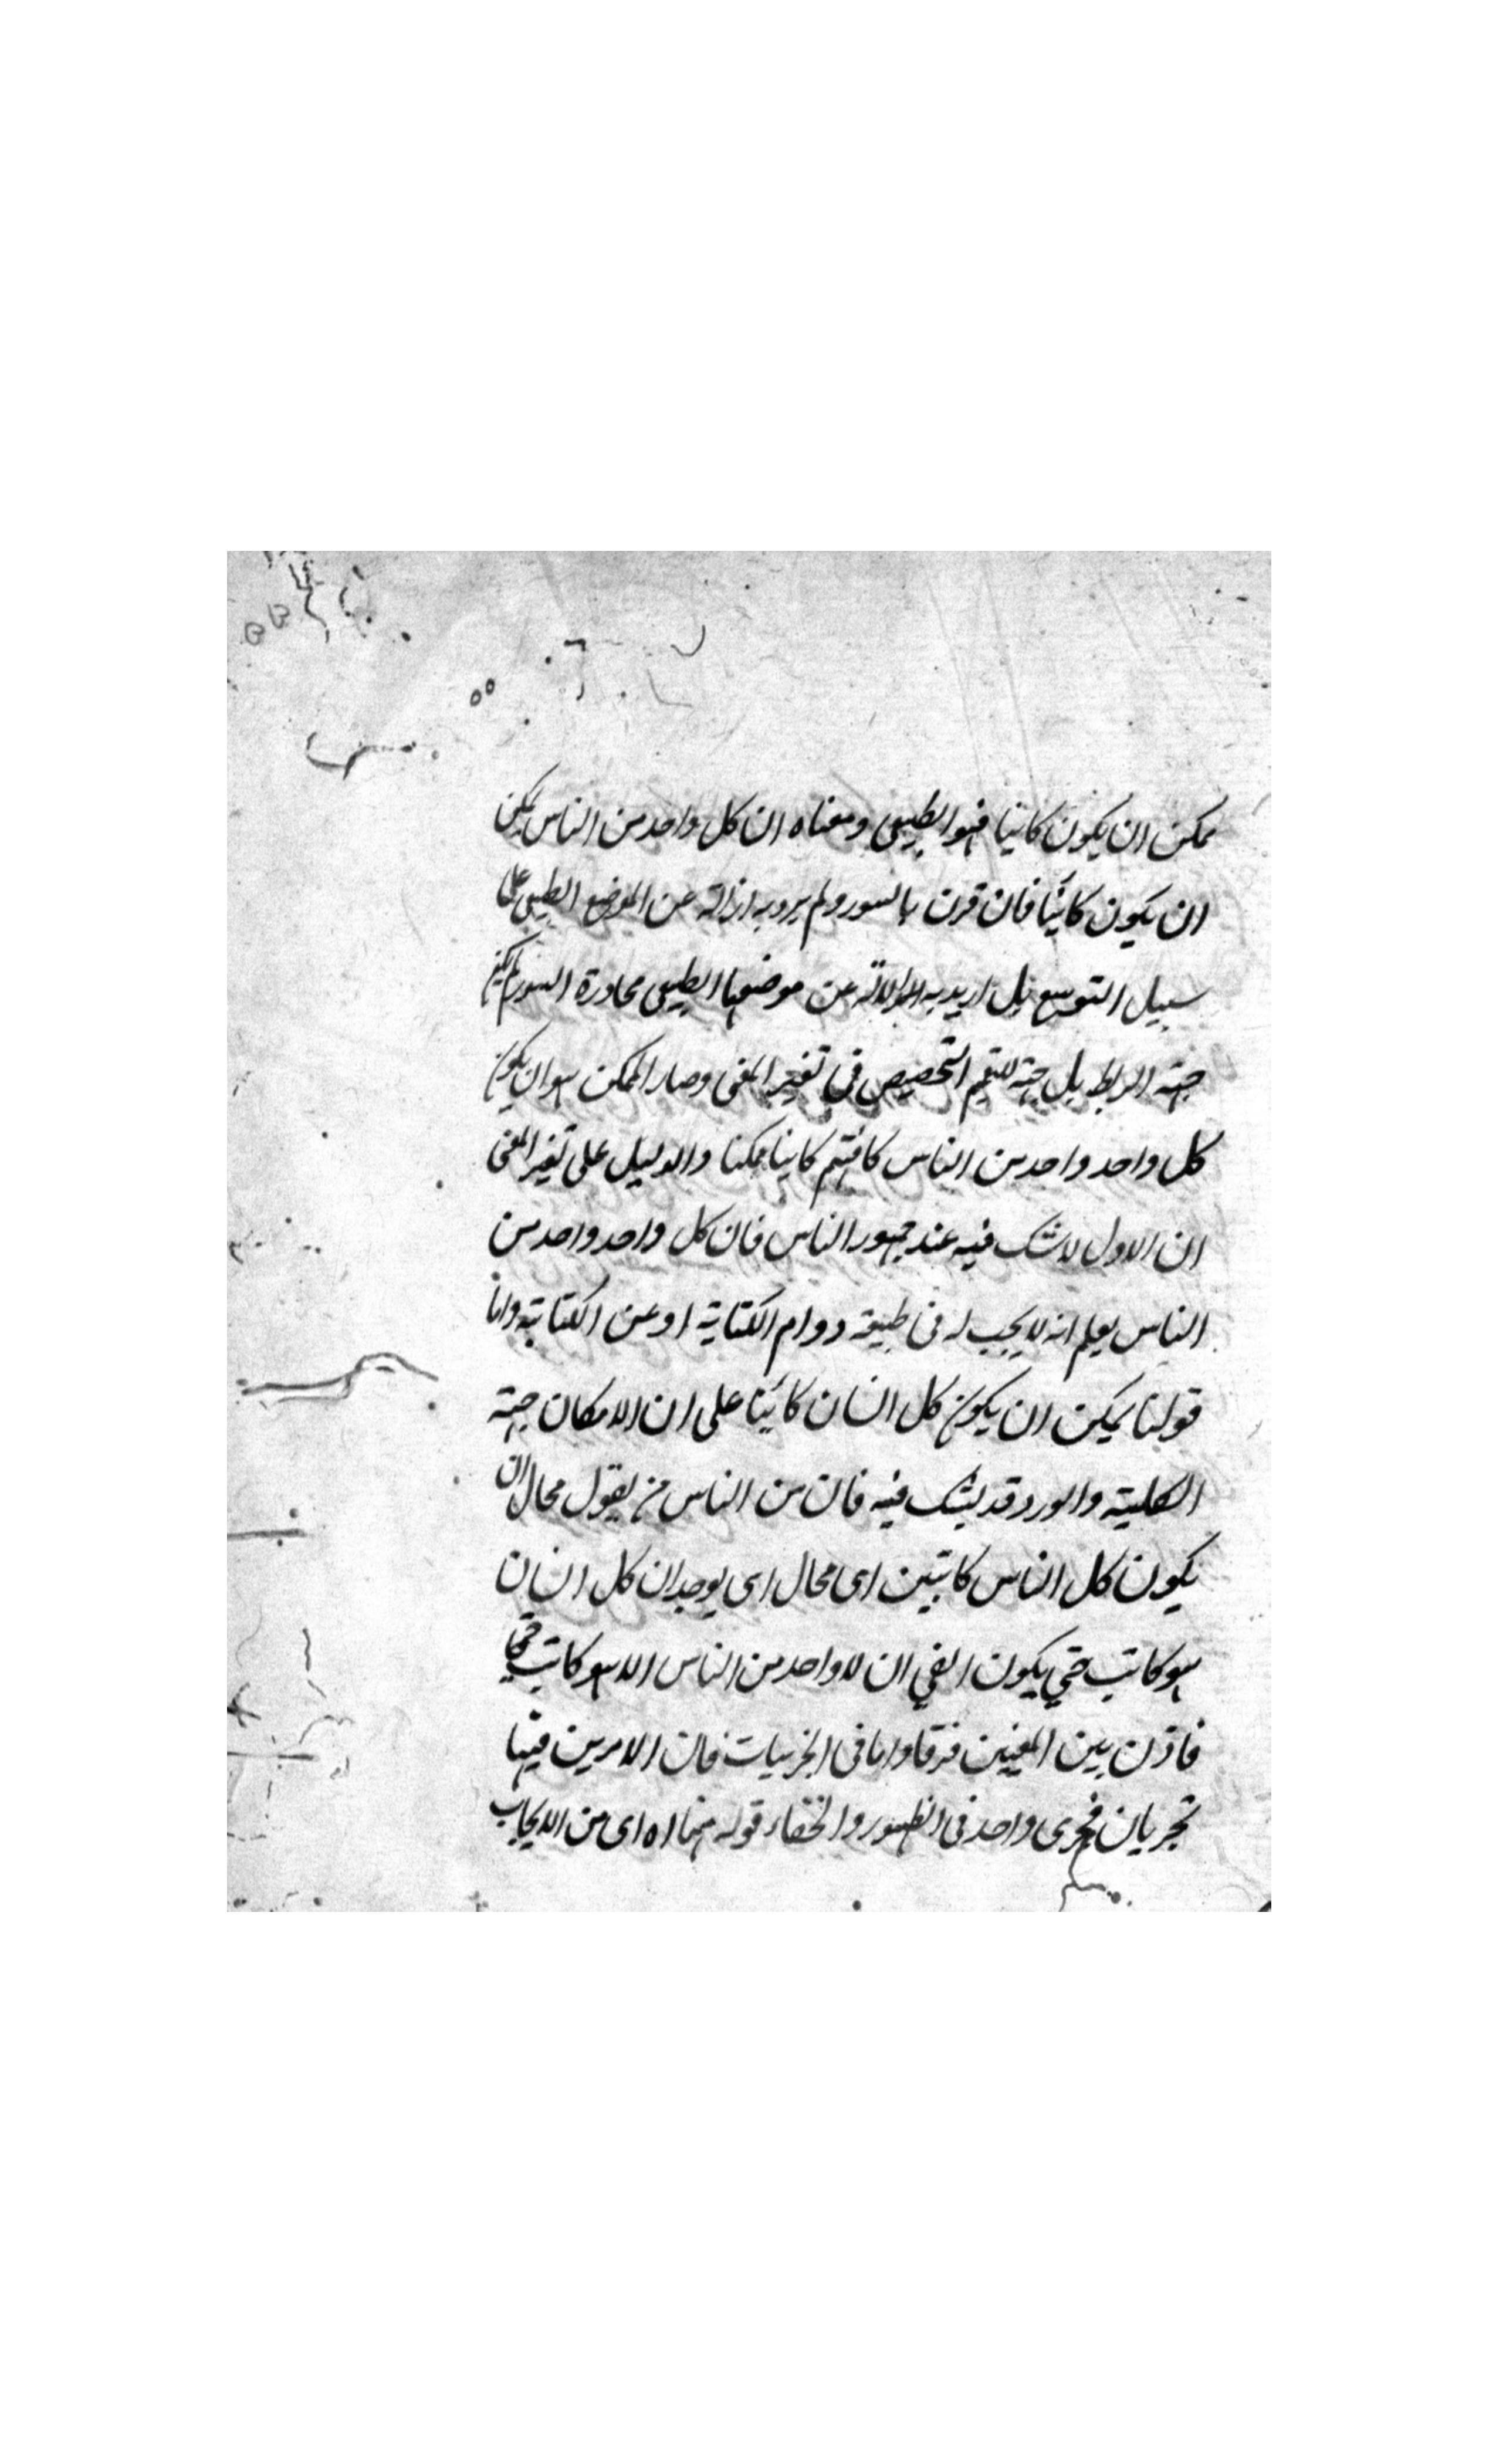 ممكن ان يكون كاتبا فهو الطبيعى ومعناه ان كل واحد من الناس يمكن
ان يكون كاتبا فان قرن بالسور ولم يرد به ازالته عن الموضع الطبيعى على
سبيل التوسع بل اريد به الدلالة عن موضعها الطبيعى مجاورة السور لم يكن
جهة الربط بل جهة للتعميم التخصيص فى تغير المعنى وصار الممكن هو ان يكون
كل واحد واحد من الناس كافتهم كاتبا ممكنا والدليل على تغير المعنى
ان الاول لا شك فيه عند جمهور الناس فان كل واحد واحد من
الناس يعلم انه لا يجب له فى طبيعته دوام الكتابة او عن الكتابة واما
قولنا يمكن ان يكون كل انسان كاتبا على ان الامكان جهة
الكلية والسور قد يشك فيه فان من الناس من يقول محال ان
يكون كل الناس كاتبين اى محال اى يوجد ان كل انسان
هو كاتب حتى يكون اتفق ان لا واحد من الناس الا هو كاتب
فاذن بين المعنيين فرقا واما فى الجزئيات فان الامرين فيها
تجريان مجرى واحد فى الظهور والخفاء قوله منها اه اى من الايجاب